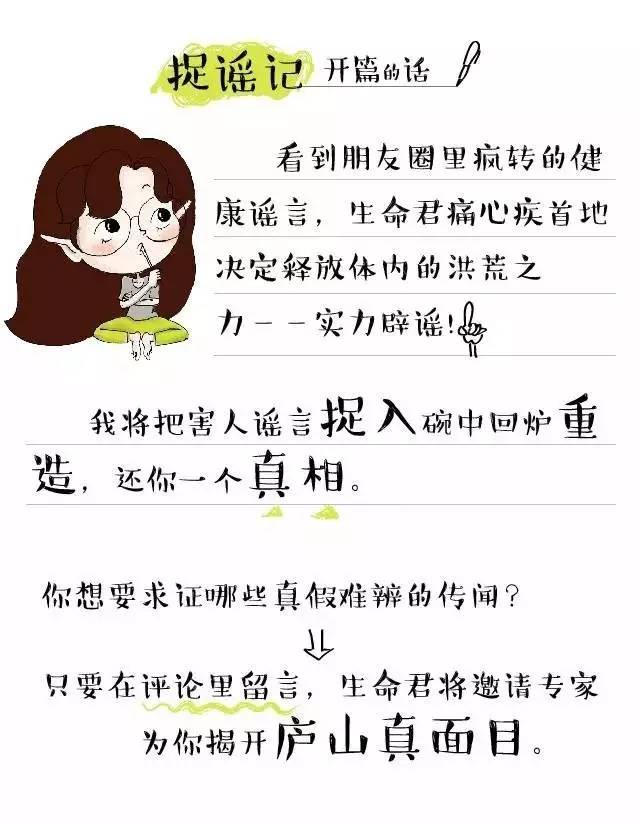 捉谣记 开篇的话
看到朋友圈里疯转的健
康谣言，生命君痛心疾首地
决定释放体内的洪荒之
力－－实力辟谣!
我将把害人谣言捉入碗中回炉重
造，还你一个真相。
你想要求证哪些真假难辨的传闻？
只要在评论里留言，生命君将邀请专家
为你揭开庐山真面目。